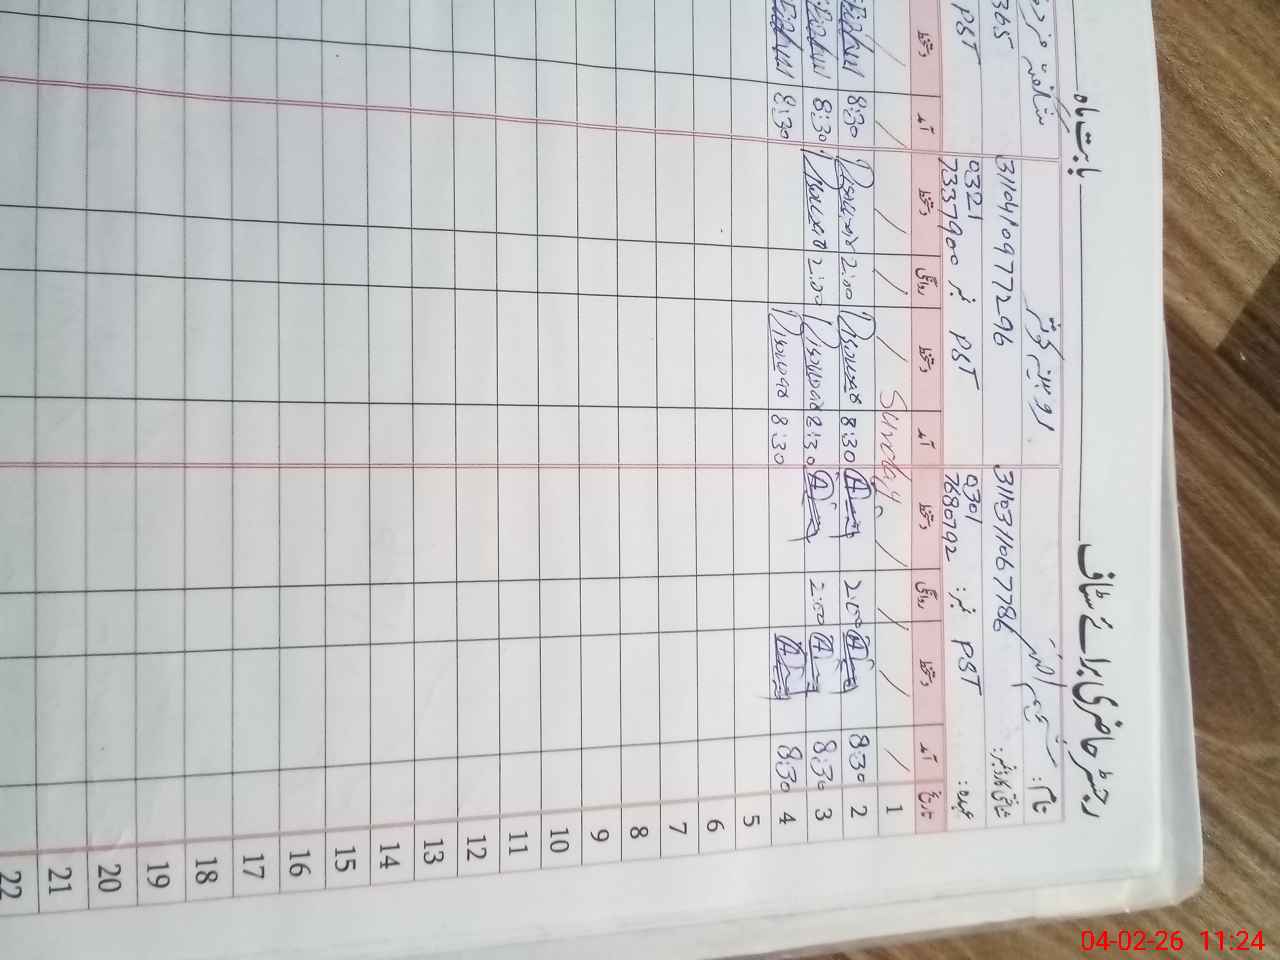 رجسٹر حاضری برائے سٹاف بابت ماہ
نام: شمیم اختر
روبینہ کوثر
شناختی کارڈ نمبر: 3110311067786
3110410977296
365
عہدہ: PST نمبر: 0301 7680792
PST نمبر 0321 7337900
PST
تاریخ آمد دستخط روانگی دستخط آمد دستخط روانگی دستخط آمد دستخط
1 Sunday
2 8:30 2:00 8:30 2:00 8:30
3 8:30 2:00 8:30 2:00 8:30
4 8:30 8:30 8:30
5
6
7
8
9
10
11
12
13
14
15
16
17
18
19
20
21
22
04-02-26 11:24